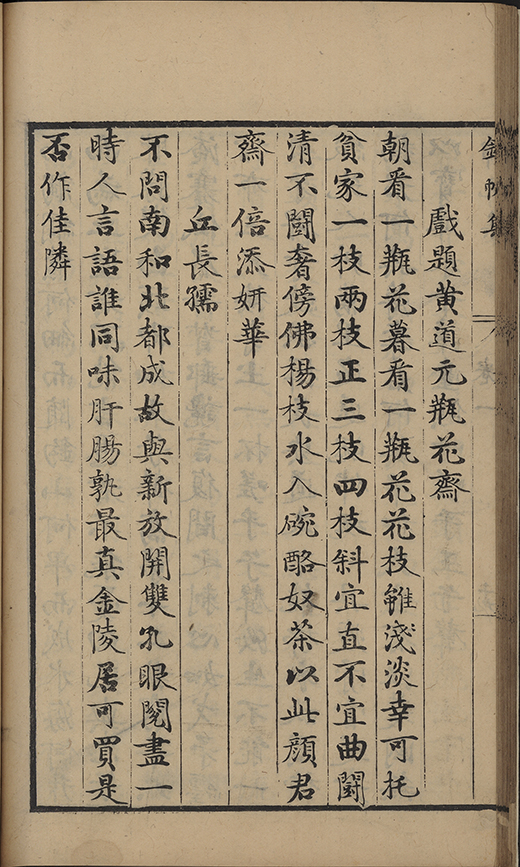 戲題黃道元瓶花齋
朝看一瓶花暮看一瓶花花枝雖淺淡幸可托
貧家一枝兩枝正三枝四枝斜宜直不宜曲鬪
清不鬪奢傍佛楊枝水入碗酪奴茶以此顏君
齋一倍添妍華
丘長孺
不問南和北都成故與新放開雙孔眼閱盡一
時人言語誰同味肝腸孰最真金陵居可買是
否作佳隣